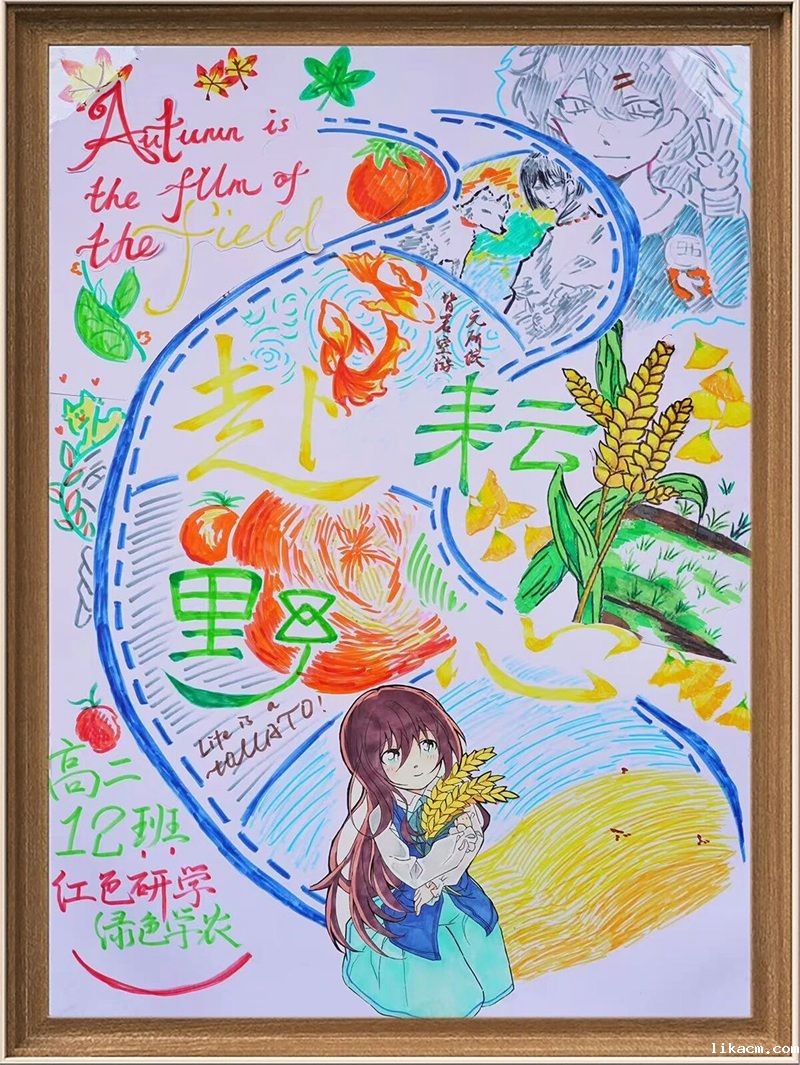 Autumn is
the film of
the field
皆若空游
无所依
赴耘
野心
Life is a
toMATO!
高二
12班
红色研学
绿色学农
likacm.com